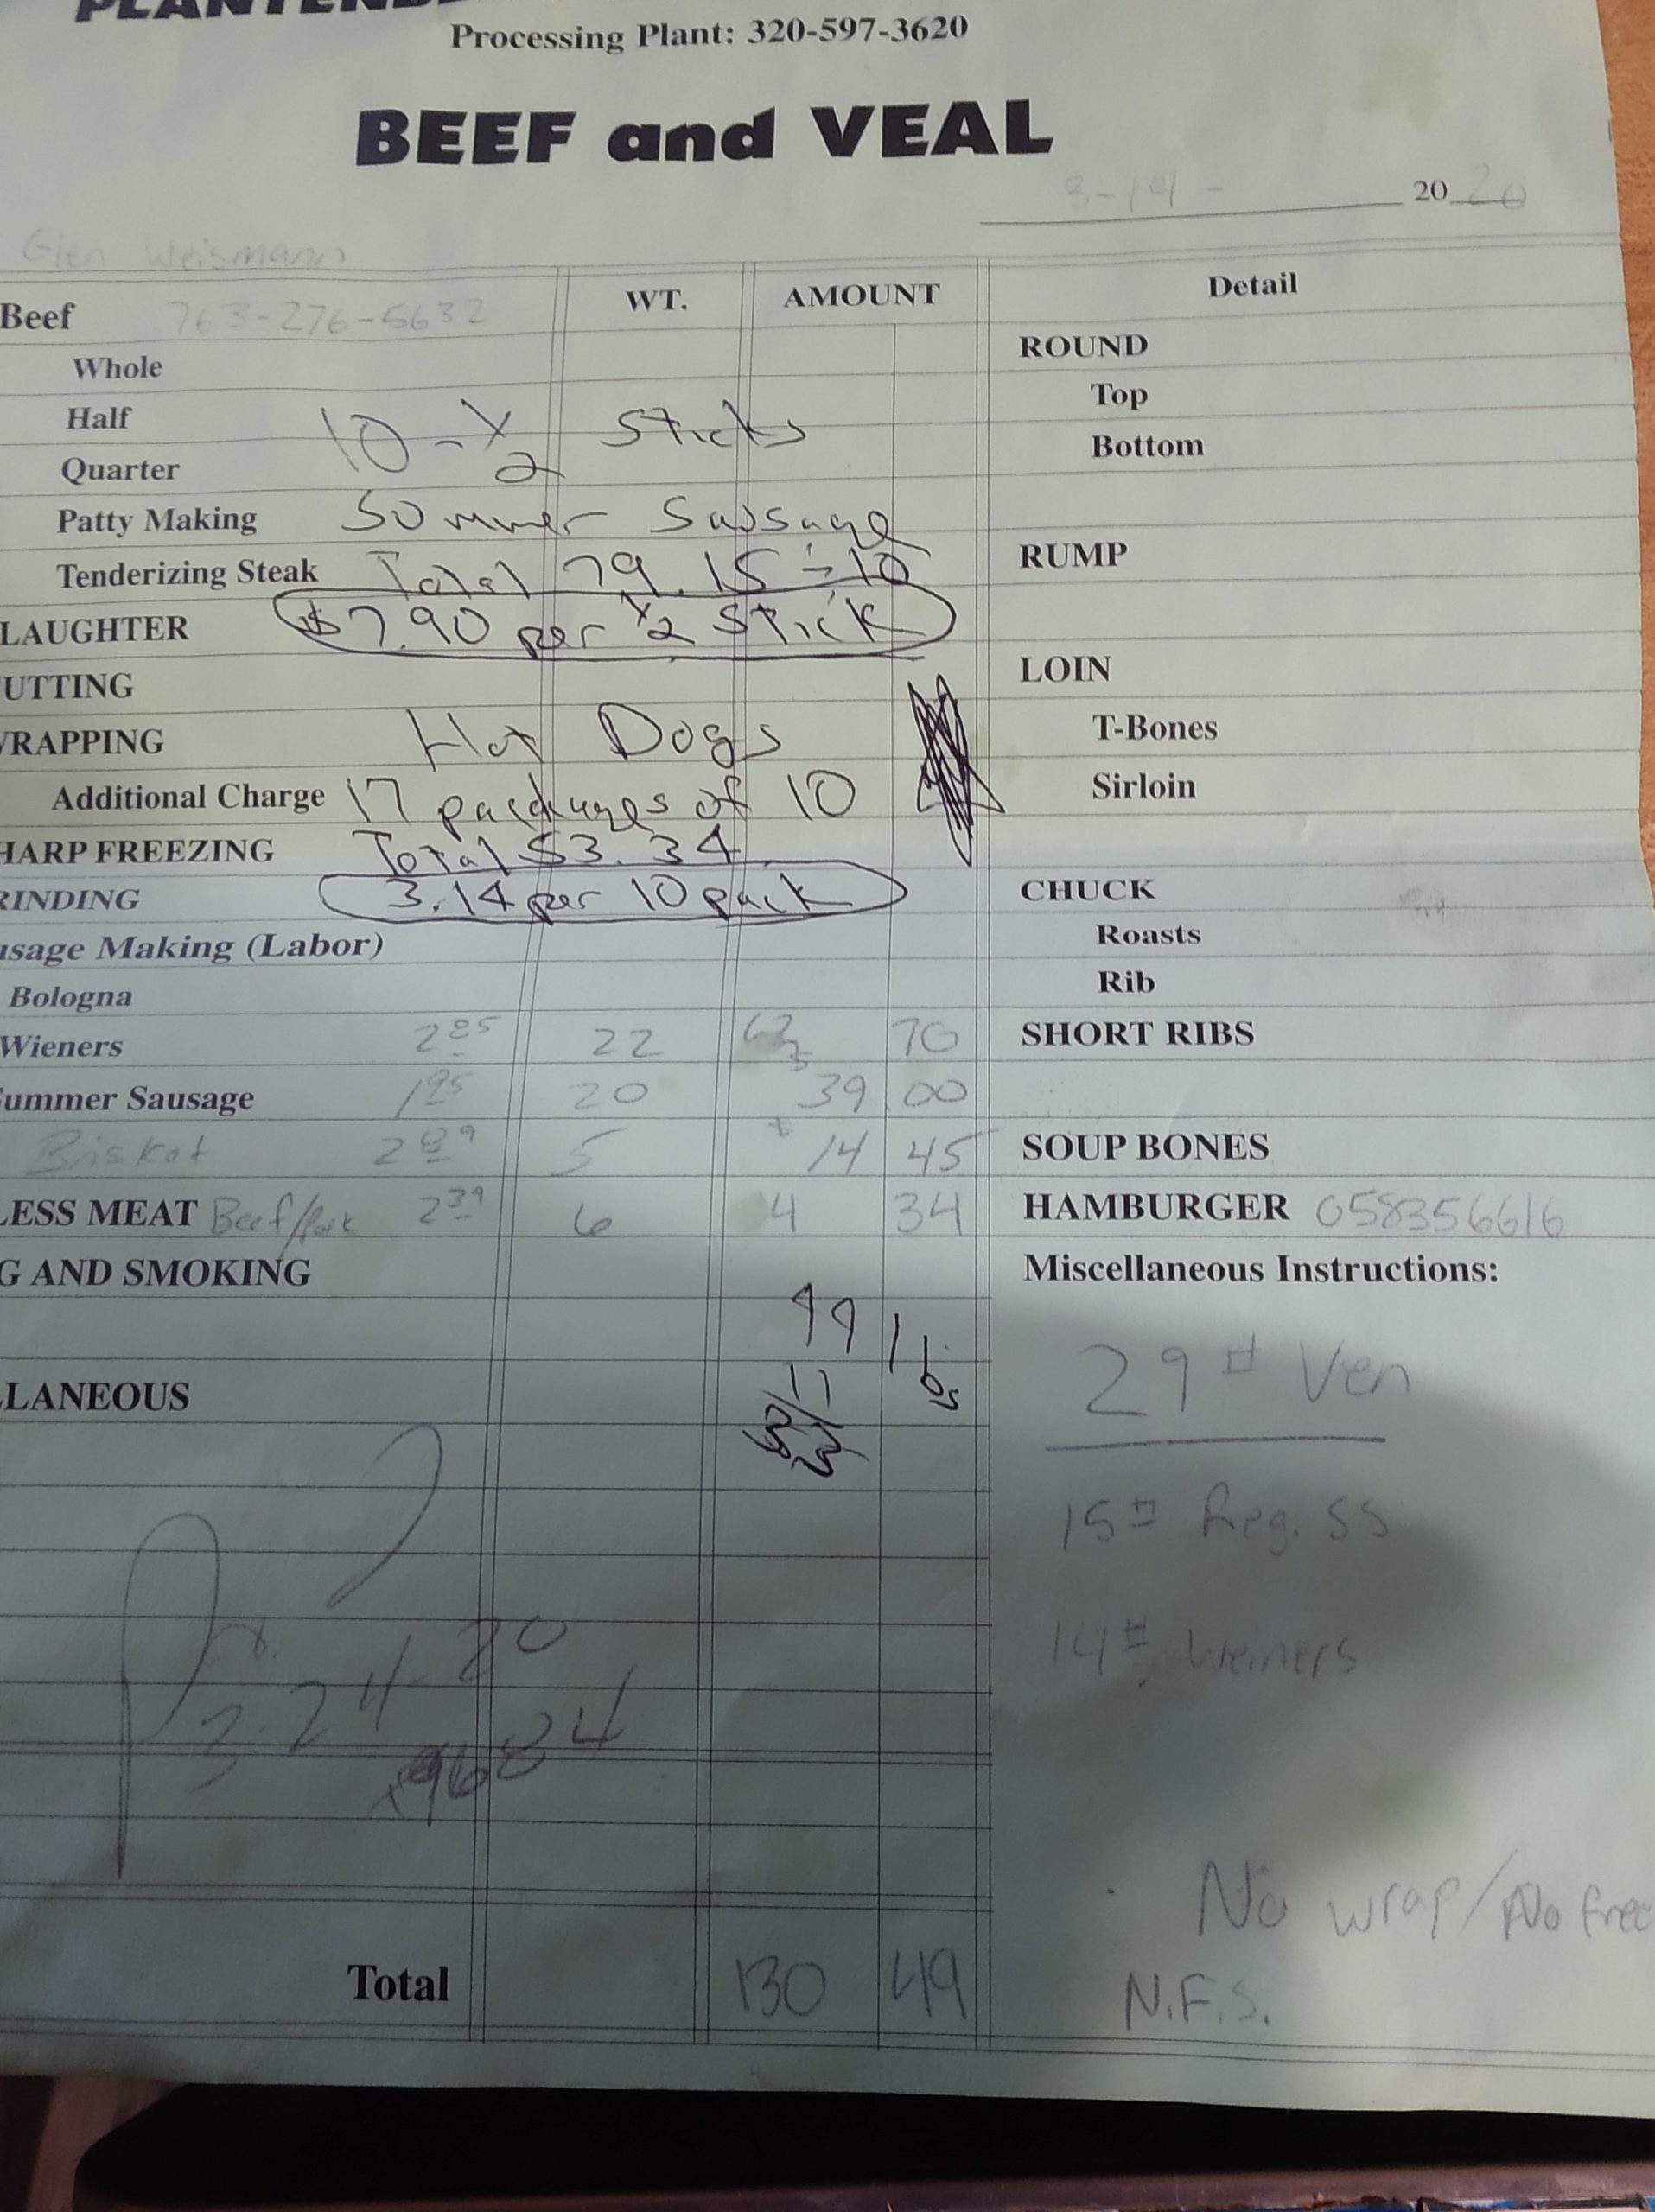 Processing Plant: 320-597-3620
BEEF and VEAL
3-14- 20 20
Glen Weismann
Beef 763-276-5632 WT. AMOUNT Detail
Whole ROUND
Half 10-½ Sticks Top
Quarter Bottom
Patty Making Sommer Sausage
Tenderizing Steak Total 79.15 ÷ 10 RUMP
LAUGHTER $7.90 per ½ Stick
UTTING LOIN
WRAPPING Hot Dogs T-Bones
Additional Charge 17 packages of 10 Sirloin
HARP FREEZING Total 53.34
RINDING 3.14 per 10 pack CHUCK
usage Making (Labor) Roasts
Bologna Rib
Wieners 2 85 22 62 70 SHORT RIBS
Summer Sausage 1 95 20 39 00
Brisket 2 89 5 14 45 SOUP BONES
LESS MEAT Beef/Pork 2 39 6 4 34 HAMBURGER 058356616
G AND SMOKING Miscellaneous Instructions:
29# Ven
LLANEOUS
15# Reg. SS
14# Weiners
3-24-20
9684
No wrap/No free
Total 130 49 N.F.S.